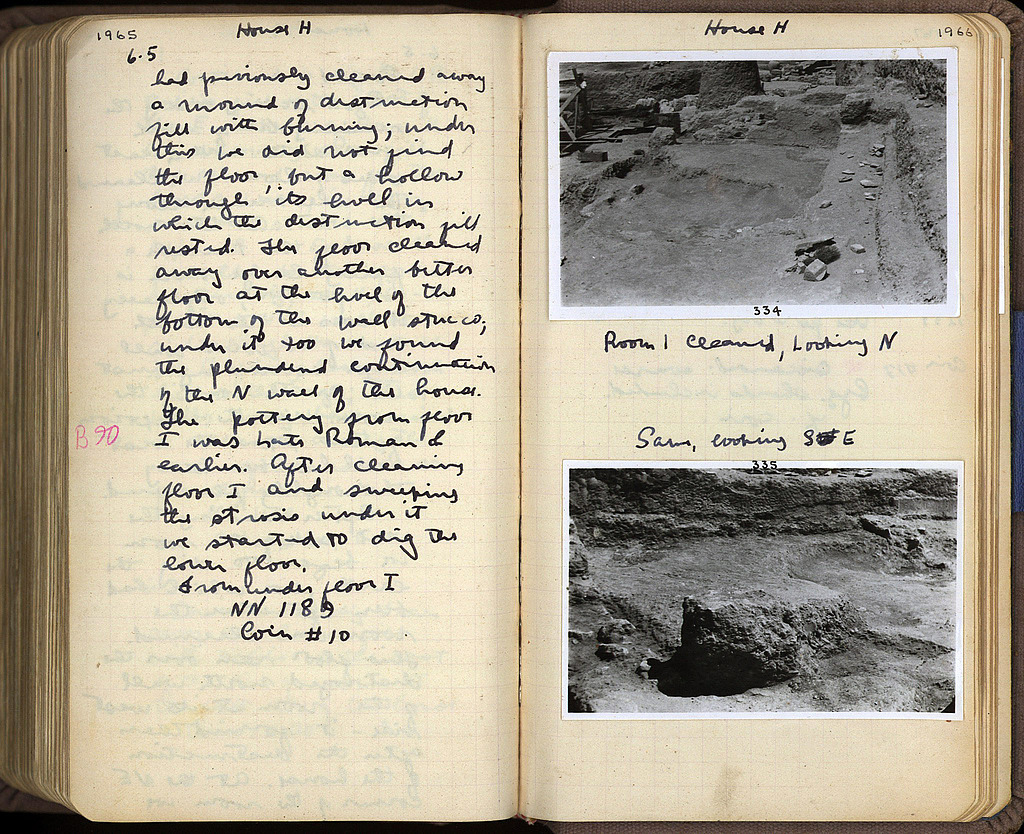 1965
House H
6.5
had previously cleaned away
a mound of destruction
fill with burning; under
this we did not find
the floor, but a hollow
through its level in
which the destruction fill
rested. The floor cleaned
away over another better
floor at the level of the
bottom of the wall stucco;
under it too we found
the plundered continuation
of the N wall of the house.
The pottery from floor
B 90
I was Late Roman &
earlier. After cleaning
floor I and sweeping
the strosis under it
we started to dig the
lower floor.
From under floor I
NN 1189
Coin #10
House H
1966
334
Room 1 cleaned, Looking N
Same, looking S E
335